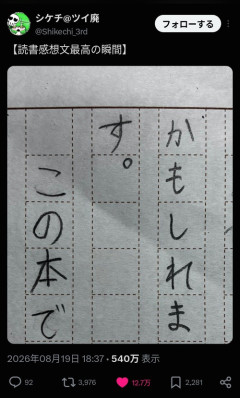 シケチ@ツイ廃
@Shikechi_3rd
フォローする
【読書感想文最高の瞬間】
かもしれま
す。
この本で
2026年08月19日 18:37・540万 表示
92
3,976
12.7万
2,281